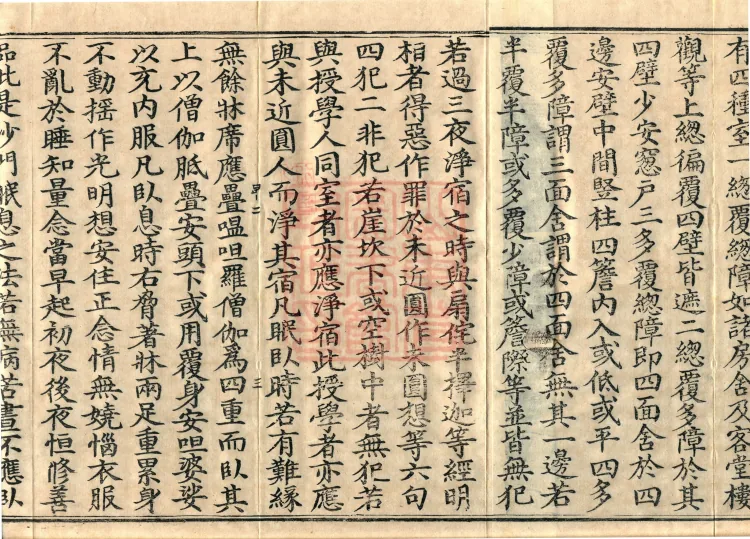 有四種室一總覆總障如諸房舍及客堂樓
觀等上總徧覆四壁皆遮二總覆多障於其
四壁少安窓户三多覆總障即四面舍於四
邊安壁中間竪柱四簷內入或低或平四多
覆多障謂三面舍謂於四面舍無其一邊若
半覆半障或多覆少障或簷際等並皆無犯
若過三夜淨宿之時與扇侘半擇迦等經明
相者得惡作罪於未近圓作未圓想等六句
四犯二非犯若崖坎下或空樹中者無犯若
與授學人同室者亦應淨宿此授學者亦應
與未近圓人而淨其宿凡眠臥時若有難緣
無餘牀席應疊嗢呾羅僧伽爲四重而臥其
上以僧伽胝疊安頭下或用覆身安呾婆娑
以充內服凡臥息時右脅著牀兩足重累身
不動搖作光明想安住正念情無嬈惱衣服
不亂於睡知量念當早起初夜後夜恒修善
品此是沙門眠息之法若無病苦晝不應臥